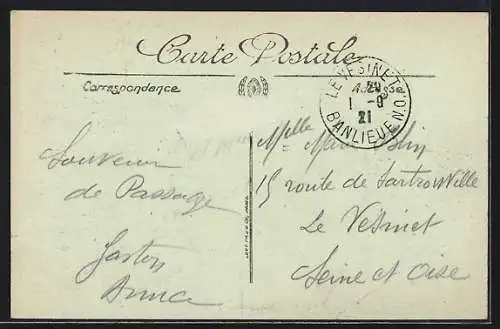 Carte Postale
Correspondance
LE VESINET
1 -9
21
BANLIEUE N.O.
Souvenir
de Passage
Gaston
Anna
Melle
15 route de Sartrouville
Le Vesinet
Seine et Oise